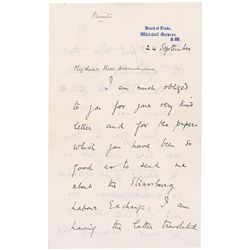 Private
Board of Trade,
Whitehall Gardens,
S.W.
24 September.
My dear Miss
I am much obliged
to you for your very kind
letter and for the papers
which you have been so
good as to send me
about the Strassburg
Labour Exchange. I am
having the latter translated